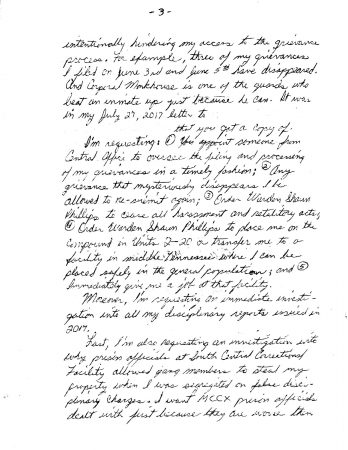 - 3 -
intentionally hindering my access to the grievance
process. For example, three of my grievances
I filed on June 3rd and June 5th have disappeared.
And Corporal Monkhouse is one of the guards who
beat an inmate up just because he can. It was
in my July 27, 2017 letter to
that you got a copy of.
I'm requesting: ① You appoint someone from
Central Office to oversee the filing and processing
of my grievances in a timely fashion; ② Any
grievance that mysteriously disappears I be
allowed to re-submit again; ③ Order Warden Shawn
Phillips to cease all harassment and retaliatory acts;
④ Order Warden Shawn Phillips to place me on the
compound in Units 2-20 or transfer me to a
facility in middle Tennessee where I can be
placed safely in the general population; and ⑤
Immediately give me a job at that facility.
Moreover, I'm requesting an immediate investi-
gation into all my disciplinary reports issued in
2017.
Last, I'm also requesting an investigation into
why prison officials at South Central Correctional
Facility allowed gang members to steal my
property when I was segregated on false disci-
plinary charges. I want MCCX prison officials
dealt with first because they are worse than